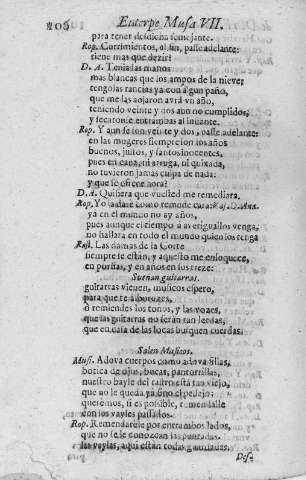 206 Euterpe Musa VII.
para tener desdicha semejante.
Rop. Corrimientos, al fin, passe adelante:
tiene mas que dezir?
D. A. Tenia las manos
mas blancas que los ampos de la nieve;
tengolas rancias ya con algun paño,
que me las aojaron avrà vn año,
teniendo veinte y dos aun no cumplidos,
y secaronse entrambas al instante.
Rop. Y aun se son veinte y dos, passe adelante:
en las mugeres siempre son los años
buenos, justos, y santos inocentes,
pues en cana, ni arruga, ni quixada,
no tuvieron jamas culpa de nada:
y que se ofrece aora?
D. A. Quisiera que vuessed me remediara.
Rop. Yo
ya en el mundo no ay años,
pues aunque el tiempo a averiguallos venga,
no hallara en todo el mundo quien los tenga
Rast. Las damas de la Corte
siempre se están, y aquesto me enloquece,
en porfias, y en años en los treze:
Suenan guitarras.
guitarras vienen, musicos espero,
para que te alboroces,
ò remiendes los tonos, y las vozes,
que las guitarras no seràn tan lerdas,
que en casa de las locas busquen cuerdas.
Salen Musicos.
Musi. Adova cuerpos como adova sillas,
botica de ojos, bocas, pantorrillas,
nuestro bayle del rastro està tan viejo,
que no le queda ya sino el pellejo:
queremos, si es possible, remendalle
con los bayles passados.
Rop. Remendarèle por entrambos lados,
que no se le conozcan las puntadas.
las vayles, aqui estàn todas guardadas.
Des-